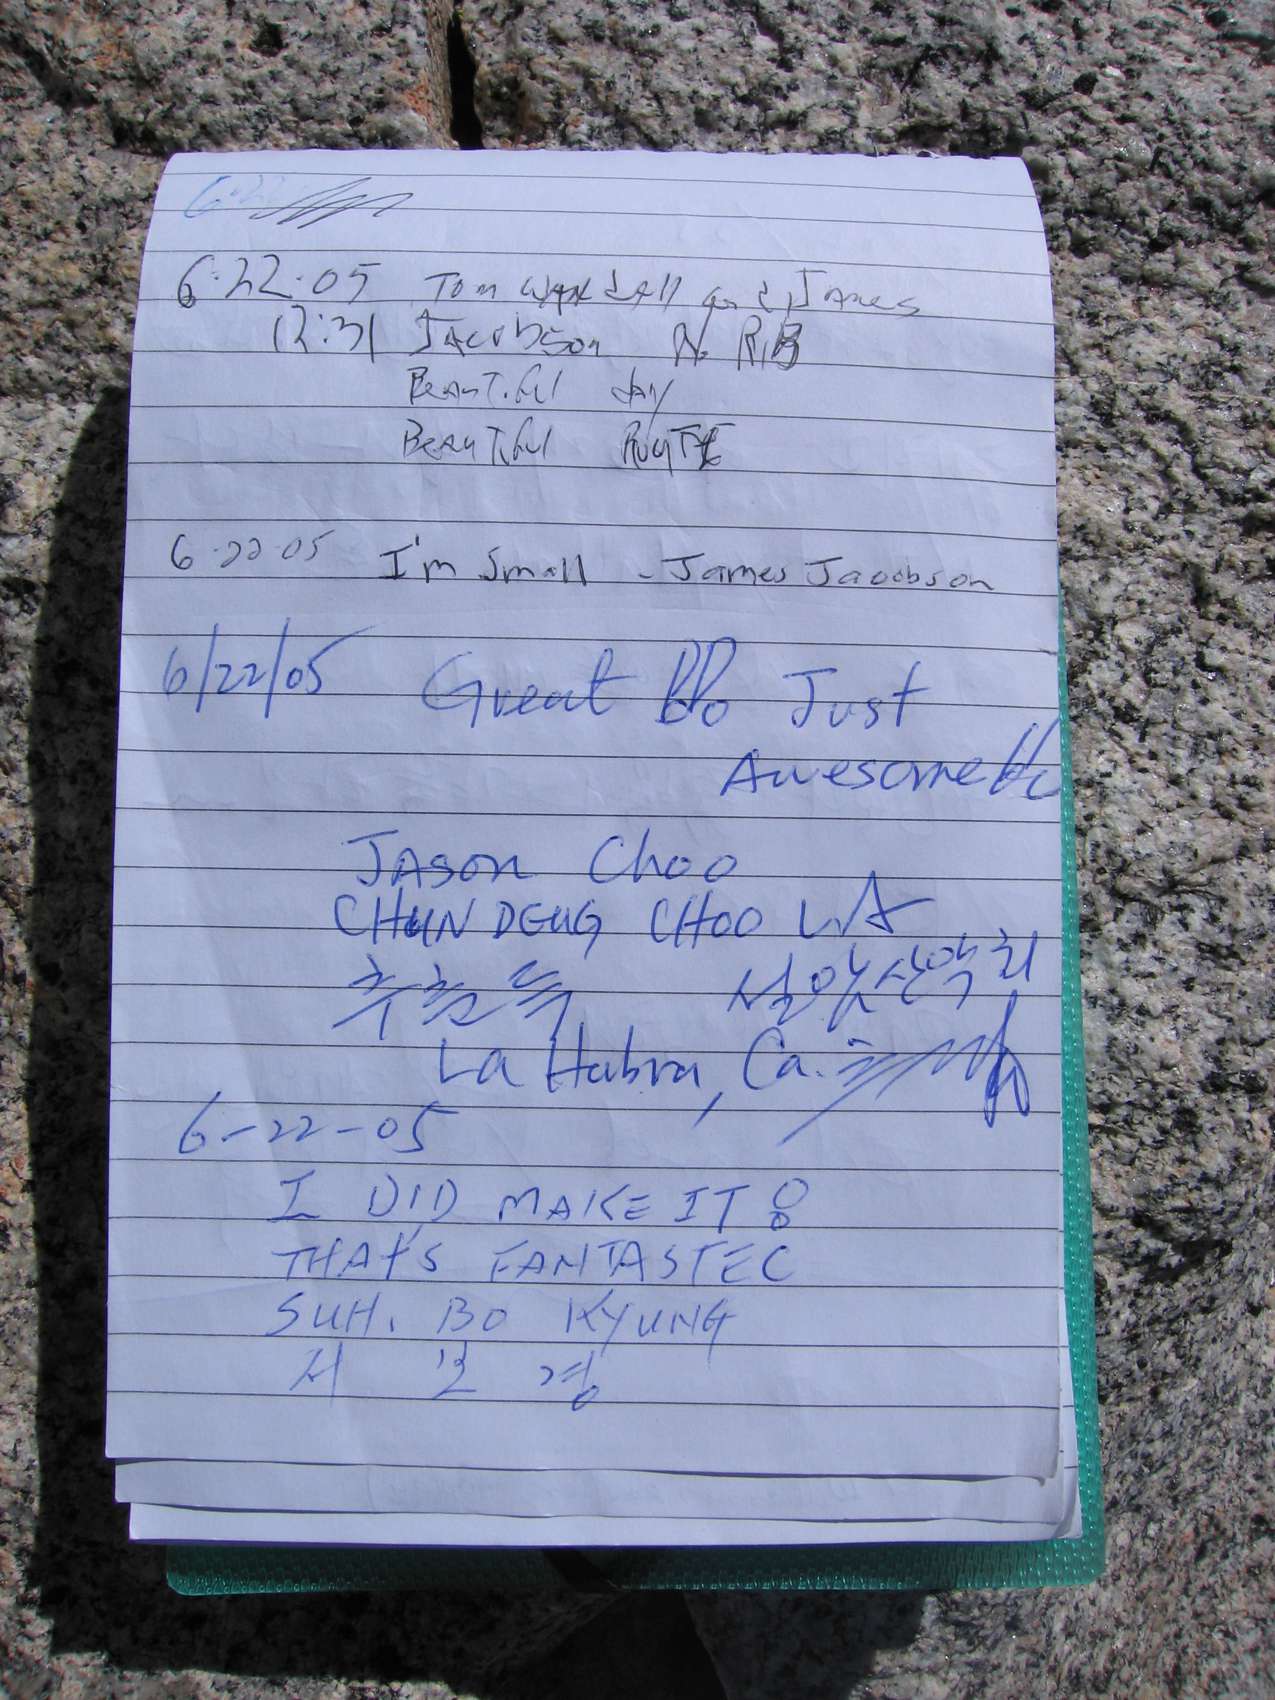 6·22·05 Tom and James
12:31 Jacobson N. RIB
Beautiful day
Beautiful ROUTE
6·22·05 I'm Small - James Jacobson
6/22/05 Great !!! Just
Awesome!!!
JASON Choo
CHUN DEUG CHOO LA
추춘득 설악산악회
La Habra, Ca.
6-22-05
I DID MAKE IT !!
THAT'S FANTASTEC
SUH. BO KYUNG
서 보 경